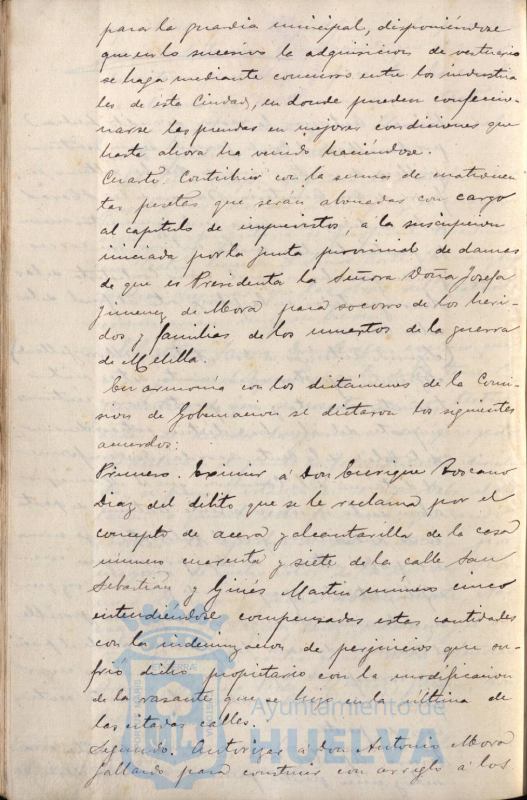 para la guardia municipal, disponiéndose
que en lo sucesivo la adquisicion de vestuario
se haga mediante concurso entre los industria
les de esta Ciudad, en donde pueden confeccio-
narse las prendas en mejores condiciones que
hasta ahora ha venido haciéndose.
Cuarto. Contribuir con la suma de cuatrocien
tas pesetas que serán abonadas con cargo
al capitulo de imprevistos, á la suscripcion
iniciada por la Junta provincial de damas
de que es Presidenta la Señora Doña Josefa
Jimenez de Mora para socorro de los heri-
dos y familias de los muertos de la guerra
de Melilla.
En armonía con los dictámenes de la Comi-
sion de Gobernacion se dictaron los siguientes
acuerdos:
Primero. Eximir á Don Enrique Toscano
Diaz del débito que se le reclama por el
concepto de acera y alcantarilla de la casa
número cuarenta y siete de la calle San
Sebastian y Ginés Martin número cinco
entendiéndose compensadas estas cantidades
con la indemnizacion de perjuicios que su-
frió dicho propietario con la modificacion
de la rasante que hizo en la última de
las citadas calles.
Segundo. Autorizar á don Antonio Mora
Gallardo para construir con arreglo á los
Ayuntamiento de
HUELVA